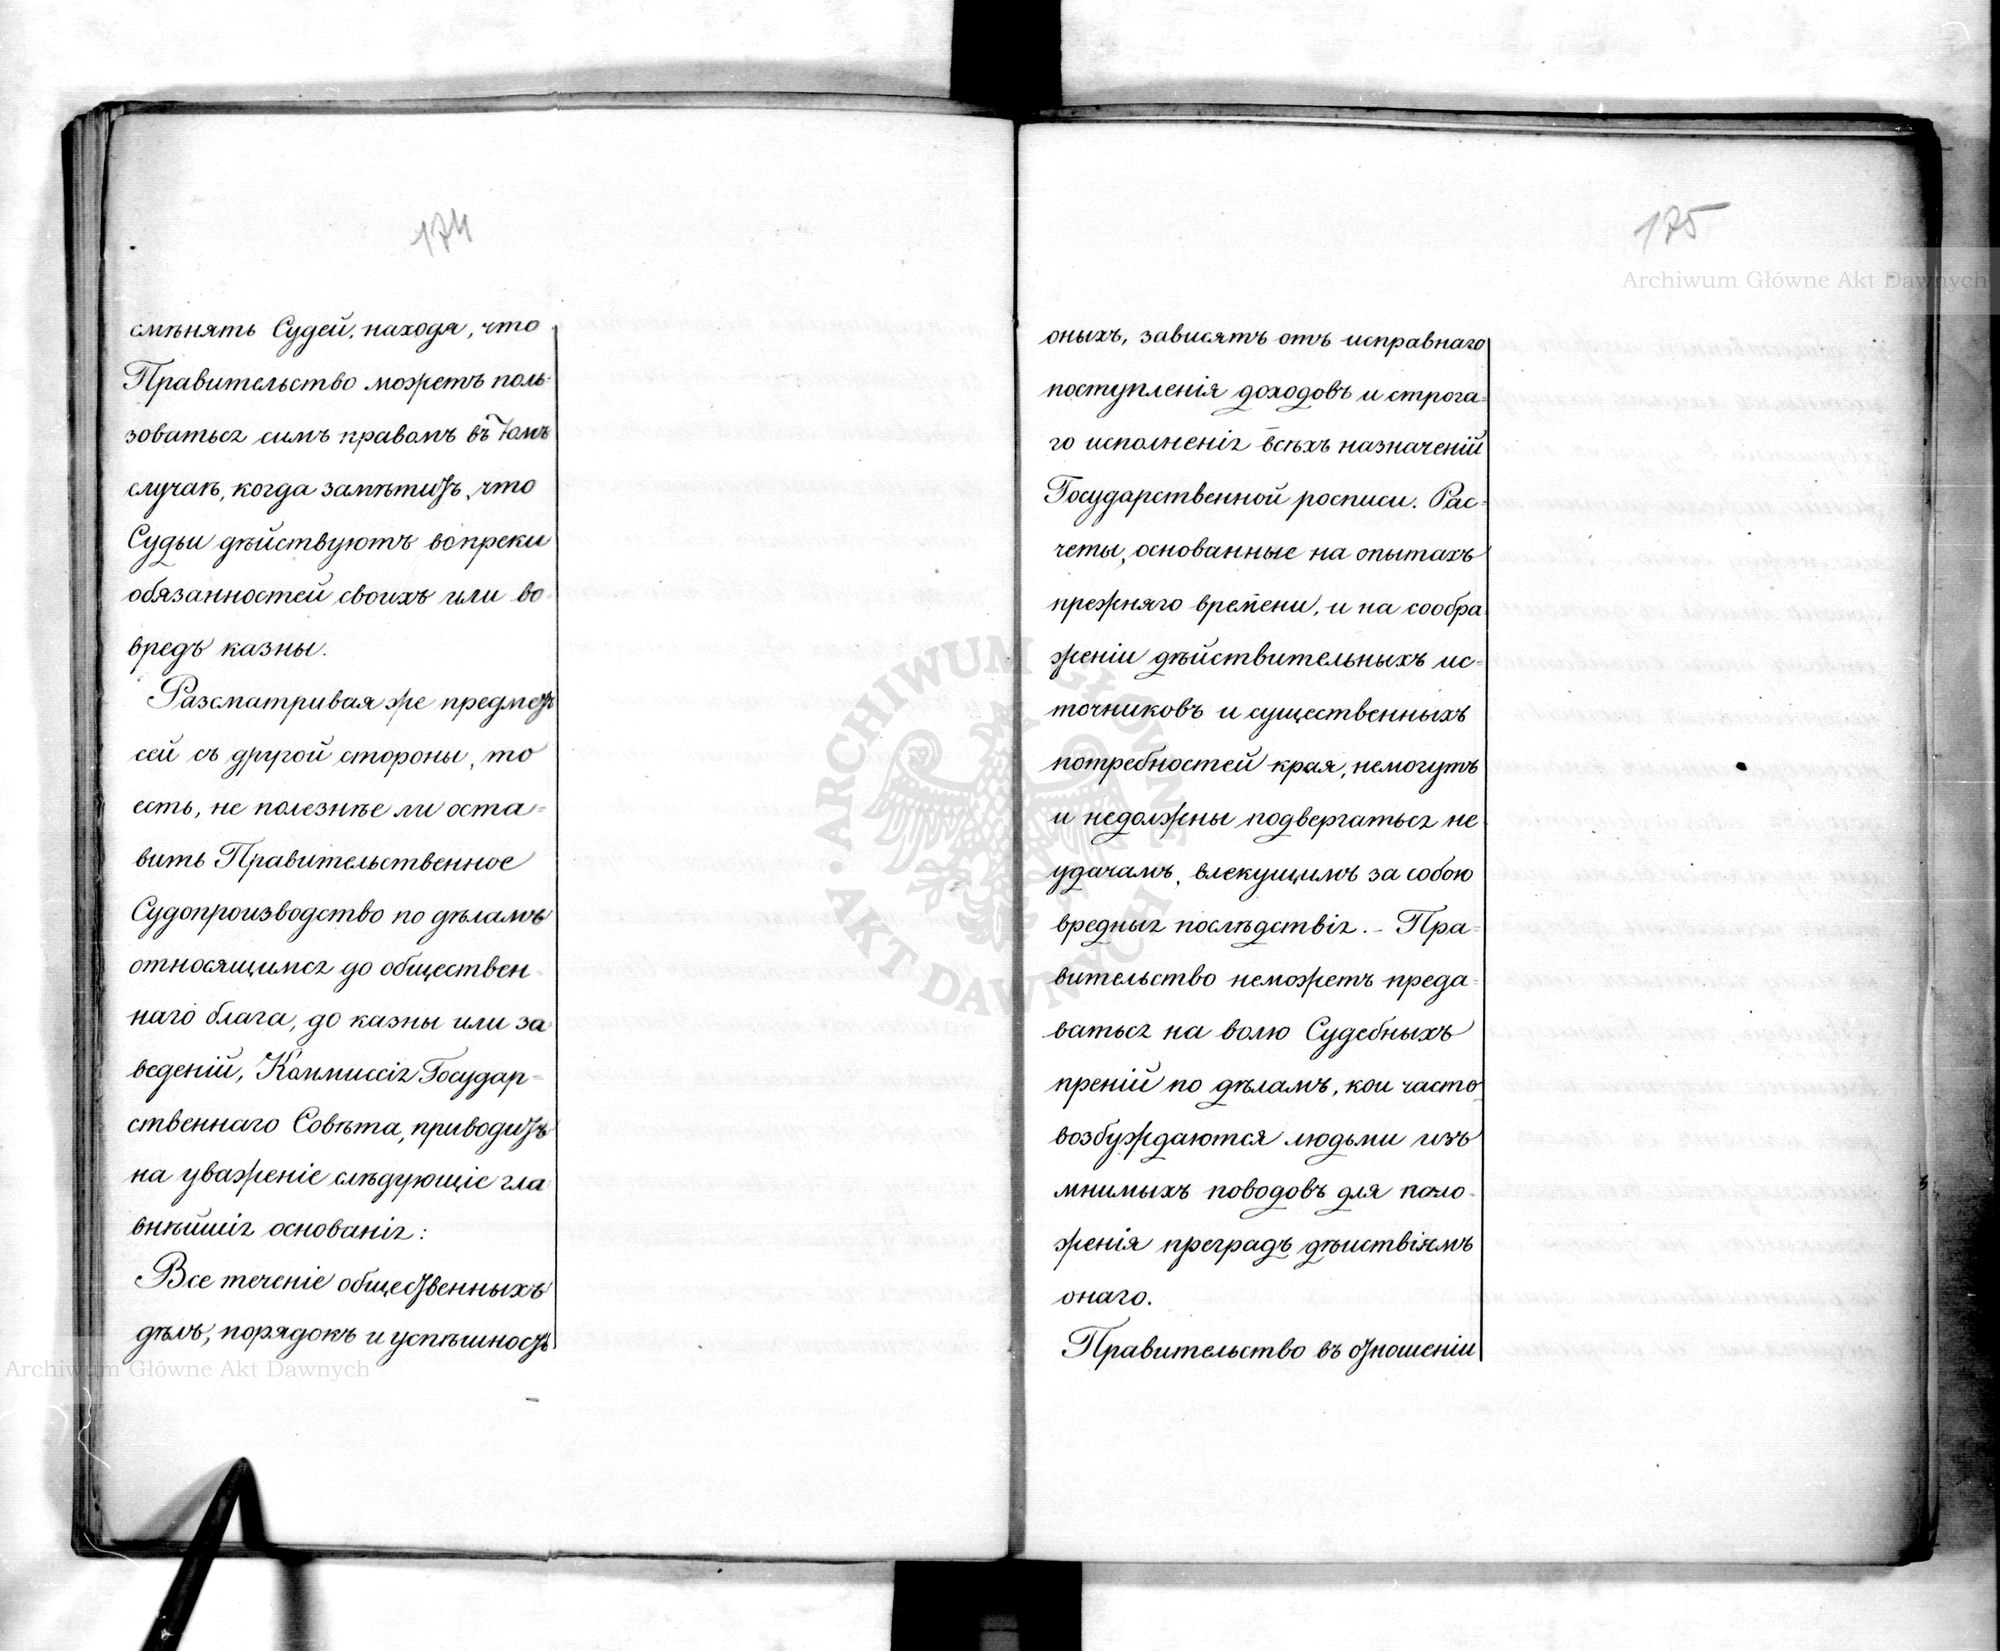 174
смѣнять Судей, находя, что
Правительство можетъ поль-
зоваться симъ правомъ въ томъ
случаѣ, когда замѣтитъ, что
Судьи дѣйствуютъ вопреки
обязанностей своихъ или во
вредъ казны.
Разсматривая же предметъ
сей съ другой стороны, то
есть, не полезнѣе ли оста=
вить Правительственное
Судопроизводство по дѣламъ
относящимся до обществен-
наго блага, до казны или за
веденій, Коммиссія Государ=
ственнаго Совѣта, приводитъ
на уваженіе слѣдующіе гла
внѣйшія основанія:
Все теченіе общественныхъ
дѣлъ, порядокъ и успѣшность
175
оныхъ, зависятъ отъ исправнаго
поступленія доходовъ и строга=
го исполненія всѣхъ назначеній
Государственной росписи. Рас-
четы, основанные на опытахъ
прежняго времени, и на сообра
женіи дѣйствительныхъ ис-
точниковъ и существенныхъ
потребностей края, немогутъ
и недолжны подвергаться не
удачамъ, влекущимъ за собою
вредныя послѣдствія. – Пра=
вительство неможетъ преда=
ваться на волю Судебныхъ
преній по дѣламъ, кои часто
возбуждаются людьми изъ
мнимыхъ поводовъ для поло-
женія преградъ дѣиствіямъ
онаго.
Правительство въ отношеніи
Archiwum Główne Akt Dawnych
Archiwum Główne Akt Dawnych
ARCHIWUM GŁÓWNE AKT DAWNYCH